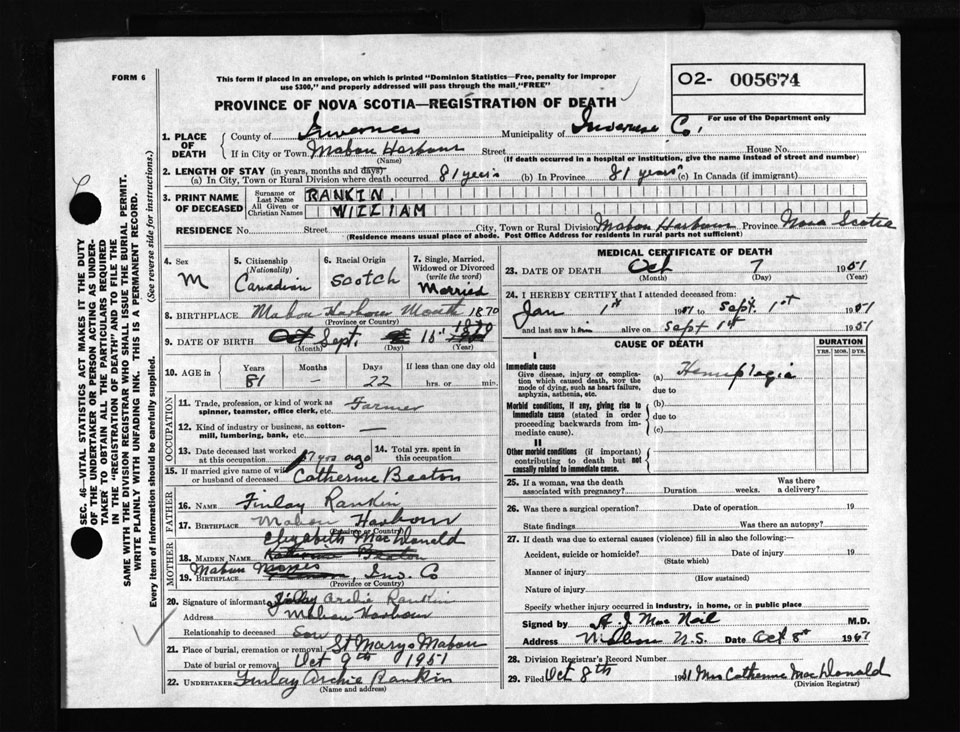 FORM 6
This form if placed in an envelope, on which is printed "Dominion Statistics—Free, penalty for improper
use $300," and properly addressed will pass through the mail "FREE"
O2- 005674
For use of the Department only
PROVINCE OF NOVA SCOTIA—REGISTRATION OF DEATH
1. PLACE OF DEATH
County of Inverness Municipality of Inverness Co.
If in City or Town Mabou Harbour Street House No.
(Name) (If death occurred in a hospital or institution, give the name instead of street and number)
2. LENGTH OF STAY (in years, months and days)
(a) In City, Town or Rural Division where death occurred 81 years (b) In Province 81 years (c) In Canada (if immigrant)
3. PRINT NAME OF DECEASED
Surname or Last Name RANKIN
All Given or Christian Names WILLIAM
RESIDENCE No. Street City, Town or Rural Division Mabou Harbour Province Nova Scotia
(Residence means usual place of abode. Post Office Address for residents in rural parts not sufficient)
4. Sex M
5. Citizenship (Nationality) Canadian
6. Racial Origin Scotch
7. Single, Married, Widowed or Divorced (write the word) Married
8. BIRTHPLACE Mabou Harbour Mouth 1870
(Province or Country)
9. DATE OF BIRTH Oct Sept. 15 1870
(Month) (Day) (Year)
10. AGE in Years 81 Months – Days 22 If less than one day old hrs. or min.
OCCUPATION
11. Trade, profession, or kind of work as spinner, teamster, office clerk, etc. Farmer
12. Kind of industry or business, as cotton-mill, lumbering, bank, etc. —
13. Date deceased last worked at this occupation 7 yrs ago
14. Total yrs. spent in this occupation
15. If married give name of wife or husband of deceased Catherine Beaton
FATHER
16. Name Finlay Rankin
17. Birthplace Mabou Harbour
(Province or Country)
MOTHER
Elizabeth MacDonald
18. Maiden Name Beaton
19. Birthplace Mabou Mines, Inv. Co
(Province or Country)
20. Signature of informant Finlay Archie Rankin
Address Mabou Harbour
Relationship to deceased Son
21. Place of burial, cremation or removal St Marys Mabou
Date of burial or removal Oct 9th 1951
22. UNDERTAKER Finlay Archie Rankin
(Name and address)
MEDICAL CERTIFICATE OF DEATH
23. DATE OF DEATH Oct 7 1951
(Month) (Day) (Year)
24. I HEREBY CERTIFY that I attended deceased from:
Jan 1st 1951 to Sept. 1st 1951
and last saw him alive on Sept 1st 1951
CAUSE OF DEATH
DURATION
YRS. MOS. DYS.
I
Immediate cause
Give disease, injury or complication which caused death, NOT the mode of dying, such as heart failure, asphyxia, asthenia, etc.
(a) Hemeplagia
due to
Morbid conditions, if any, giving rise to immediate cause (stated in order proceeding backwards from immediate cause).
(b)
due to
(c)
II
Other morbid conditions (if important) contributing to death but not causally related to immediate cause.
25. If a woman, was the death associated with pregnancy? Duration weeks. Was there a delivery?
26. Was there a surgical operation? Date of operation 19
State findings Was there an autopsy?
27. If death was due to external causes (violence) fill in also the following:—
Accident, suicide or homicide? Date of injury 19
(State which)
Manner of injury
(How sustained)
Nature of injury
Specify whether injury occurred in industry, in home, or in public place
Signed by A. J. MacNeil M.D.
Address Mabou N.S. Date Oct 8th 1951
28. Division Registrar's Record Number
29. Filed Oct 8th 1951 Mrs Catherine MacDonald
(Division Registrar)
SEC. 46—VITAL STATISTICS ACT MAKES IT THE DUTY
OF THE UNDERTAKER OR PERSON ACTING AS UNDER-
TAKER TO OBTAIN ALL THE PARTICULARS REQUIRED
IN THE "REGISTRATION OF DEATH" AND TO FILE THE
SAME WITH THE DIVISION REGISTRAR WHO SHALL ISSUE THE BURIAL PERMIT.
WRITE PLAINLY WITH UNFADING INK. THIS IS A PERMANENT RECORD.
Every item of information should be carefully supplied. (See reverse side for instructions.)